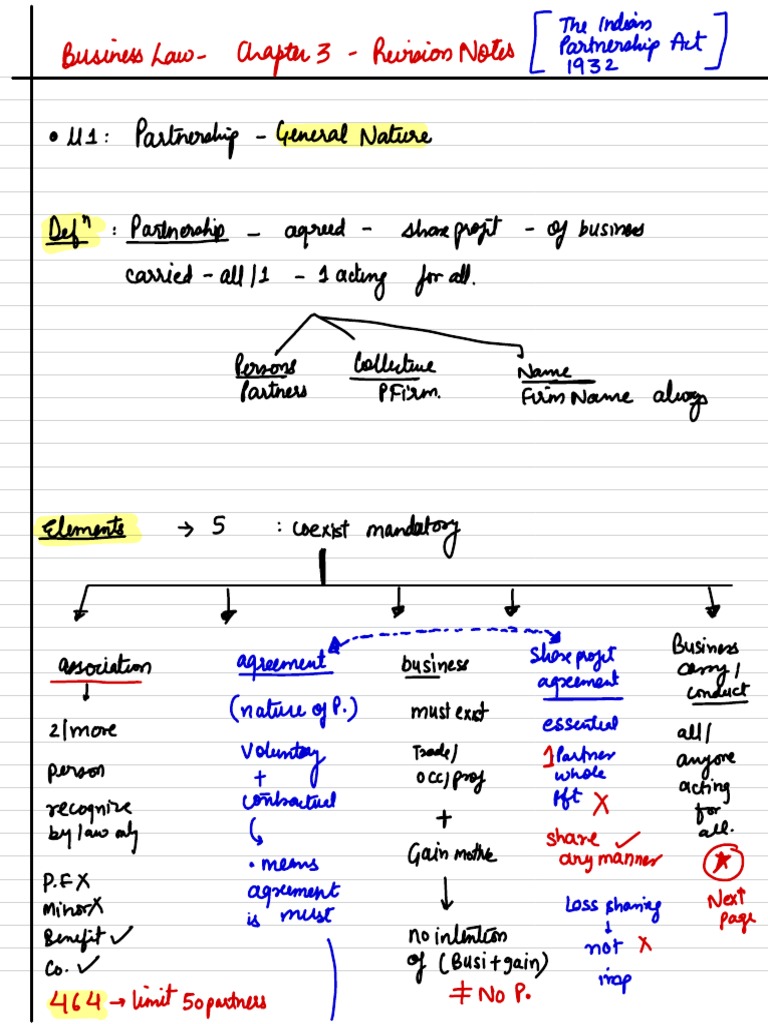 Business Law - Chapter 3 - Revision Notes
[The Indian
Partnership Act
1932]
• U1: Partnership - General Nature
Defⁿ : Partnership - agreed - share profit - of business
carried - all/1 - 1 acting for all.
Persons
Partners
Collective
P Firm.
Name
Firm Name always
Elements → 5 : coexist mandatory
association
2/more
person
recognize
by law only
P.F X
Minor X
Benefit ✓
Co. ✓
464 → limit 50 partners
agreement
(nature of P.)
Voluntary
+
contractual
• means
agreement
is must
business
must exist
Trade/
occ/prof
+
Gain motive
no intention
of (Busi + gain)
≠ No P.
Share profit
agreement
essential
1 Partner
whole
Pft X
share ✓
any manner
Loss sharing
not X
imp
Business
carry/
conduct
all/
anyone
acting
for
all.
★
Next
page